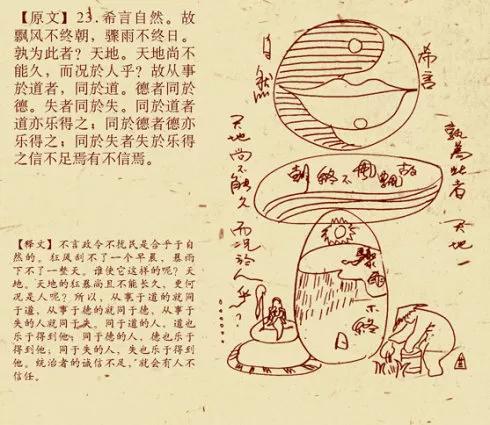 【原文】23.希言自然。故
飘风不终朝，骤雨不终日。
孰为此者？天地。天地尚不
能久，而况於人乎？故从事
於道者，同於道。德者同於
德。失者同於失。同於道者
道亦乐得之；同於德者德亦
乐得之；同於失者失於乐得
之信不足焉有不信焉。
【释文】不言政令不扰民是合乎于自
然的。狂风刮不了一个早晨，暴雨
下不了一整天。谁使它这样的呢？天
地。天地的狂暴尚且不能长久，更何
况是人呢？所以，从事于道的就同
于道，从事于德的就同于德，从事于
失的人就同于失。同于道的人，道也
乐于得到他；同于德的人，德也乐于
得到他；同于失的人，失也乐于得到
他。统治者的诚信不足，就会有人不
信任。
希言
自然
故飘風不終朝
驟雨不終日
孰為此者 天地
天地尚不能久 而况於人乎？